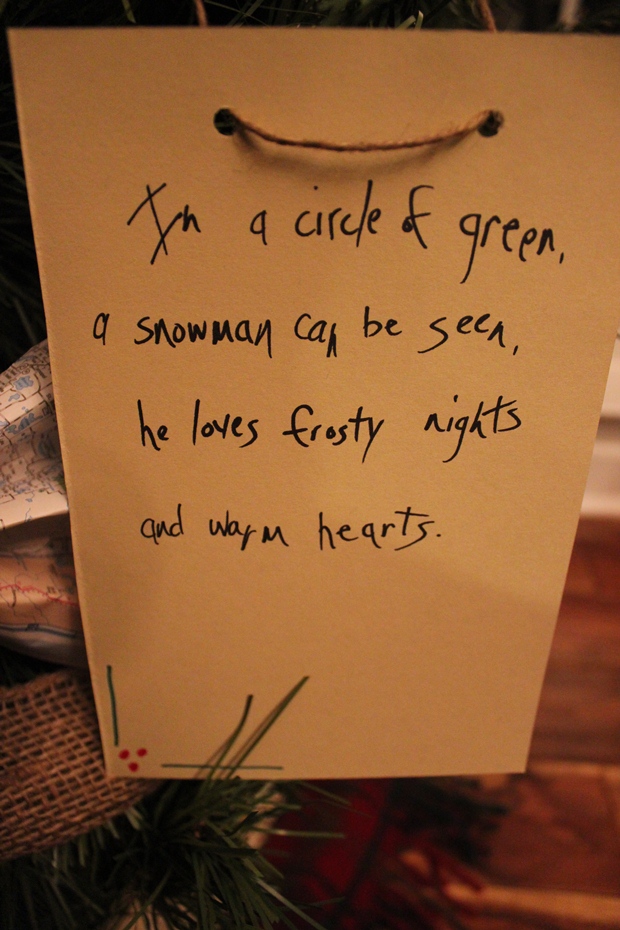 In a circle of green,
a snowman can be seen,
he loves frosty nights
and warm hearts.